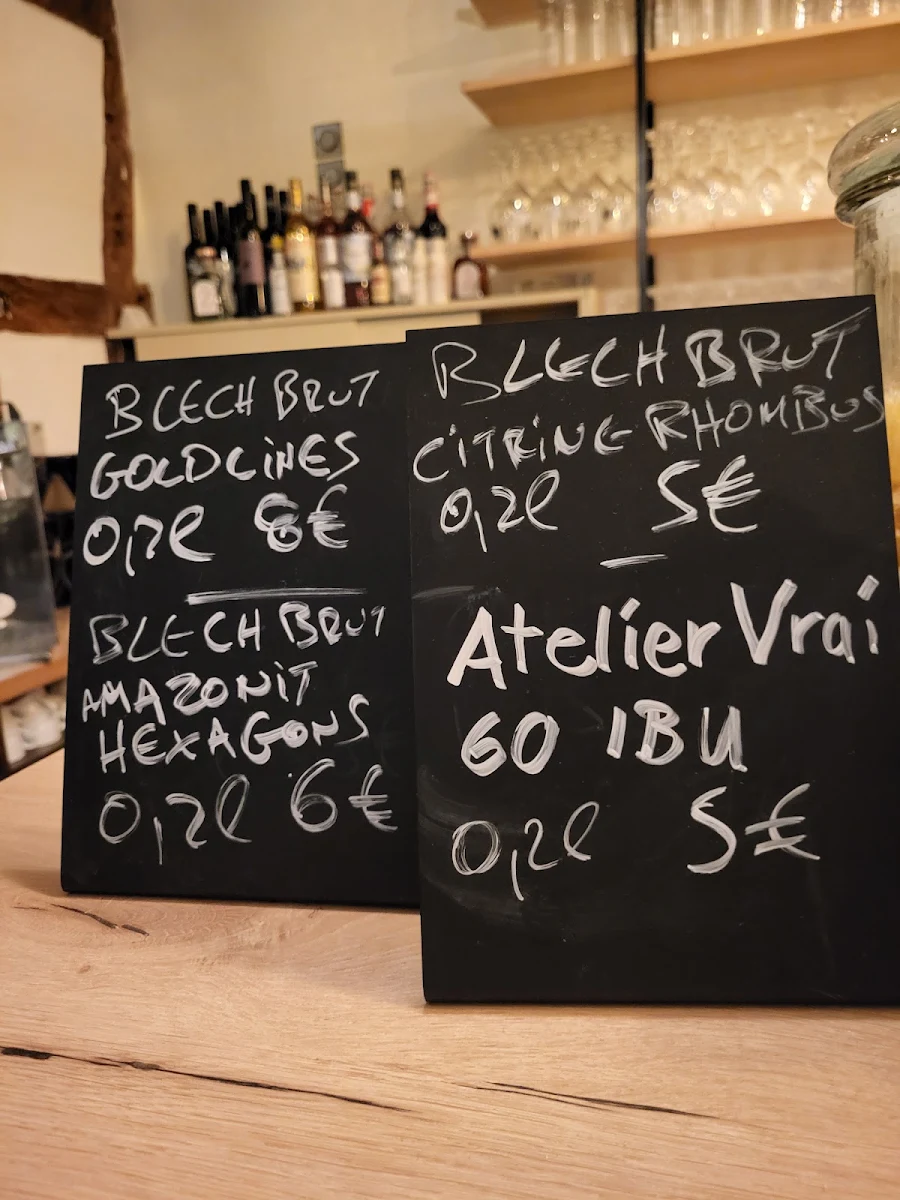 BLECH BRUT
GOLDLINES
0,2l 6€
BLECH BRUT
AMAZONIT
HEXAGONS
0,2l 6€
BLECH BRUT
CITRINE RHOMBUS
0,2l 5€
Atelier Vrai
60 IBU
0,2l 5€